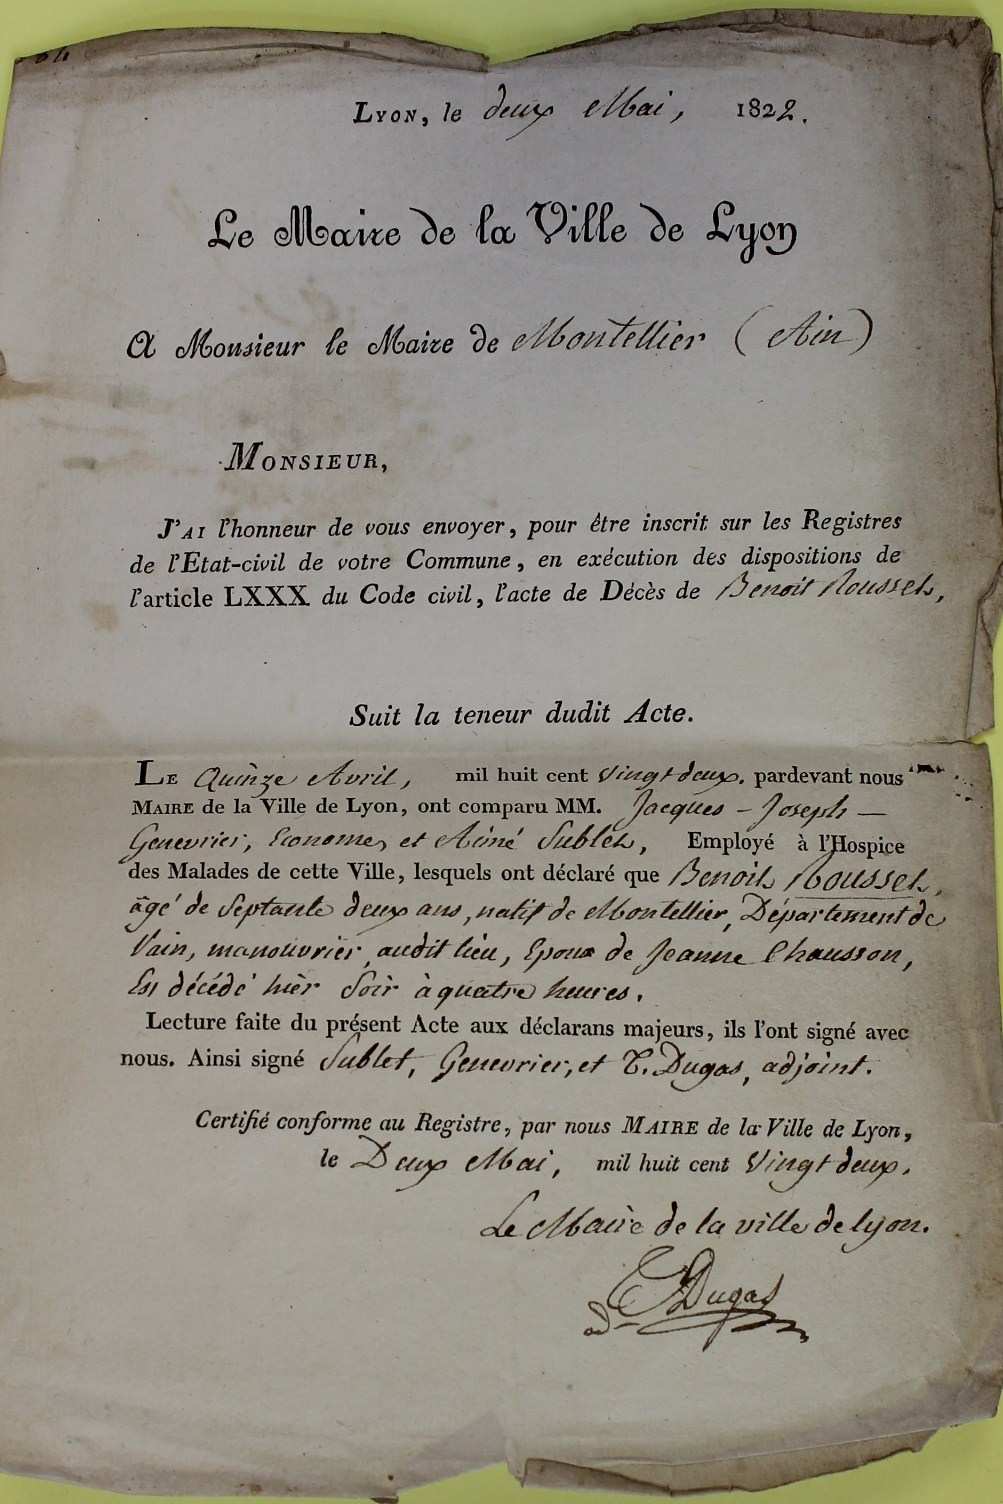 Lyon, le deux Mai, 1822.
Le Maire de la Ville de Lyon
A Monsieur le Maire de Montellier (Ain)
Monsieur,
J'ai l'honneur de vous envoyer, pour être inscrit sur les Registres
de l'Etat-civil de votre Commune, en exécution des dispositions de
l'article LXXX du Code civil, l'acte de Décès de Benoit Rousset,
Suit la teneur dudit Acte.
Le Quinze Avril, mil huit cent vingt deux. pardevant nous
Maire de la Ville de Lyon, ont comparu MM. Jacques - Joseph -
Genevrier, Econome, et Aimé Sublet, Employé à l'Hospice
des Malades de cette Ville, lesquels ont déclaré que Benoit Rousset,
âgé de Septante deux ans, natif de Montellier, Département de
l'ain, manouvrier audit lieu, Epoux de Jeanne Chausson,
Est décédé hièr Soir à quatre heures.
Lecture faite du présent Acte aux déclarans majeurs, ils l'ont signé avec
nous. Ainsi signé Sublet, Genevrier, et T. Dugas, adjoint.
Certifié conforme au Registre, par nous Maire de la Ville de Lyon,
le Deux Mai, mil huit cent Vingt deux.
Le Maire de la ville de lyon.
T Dugas
adj